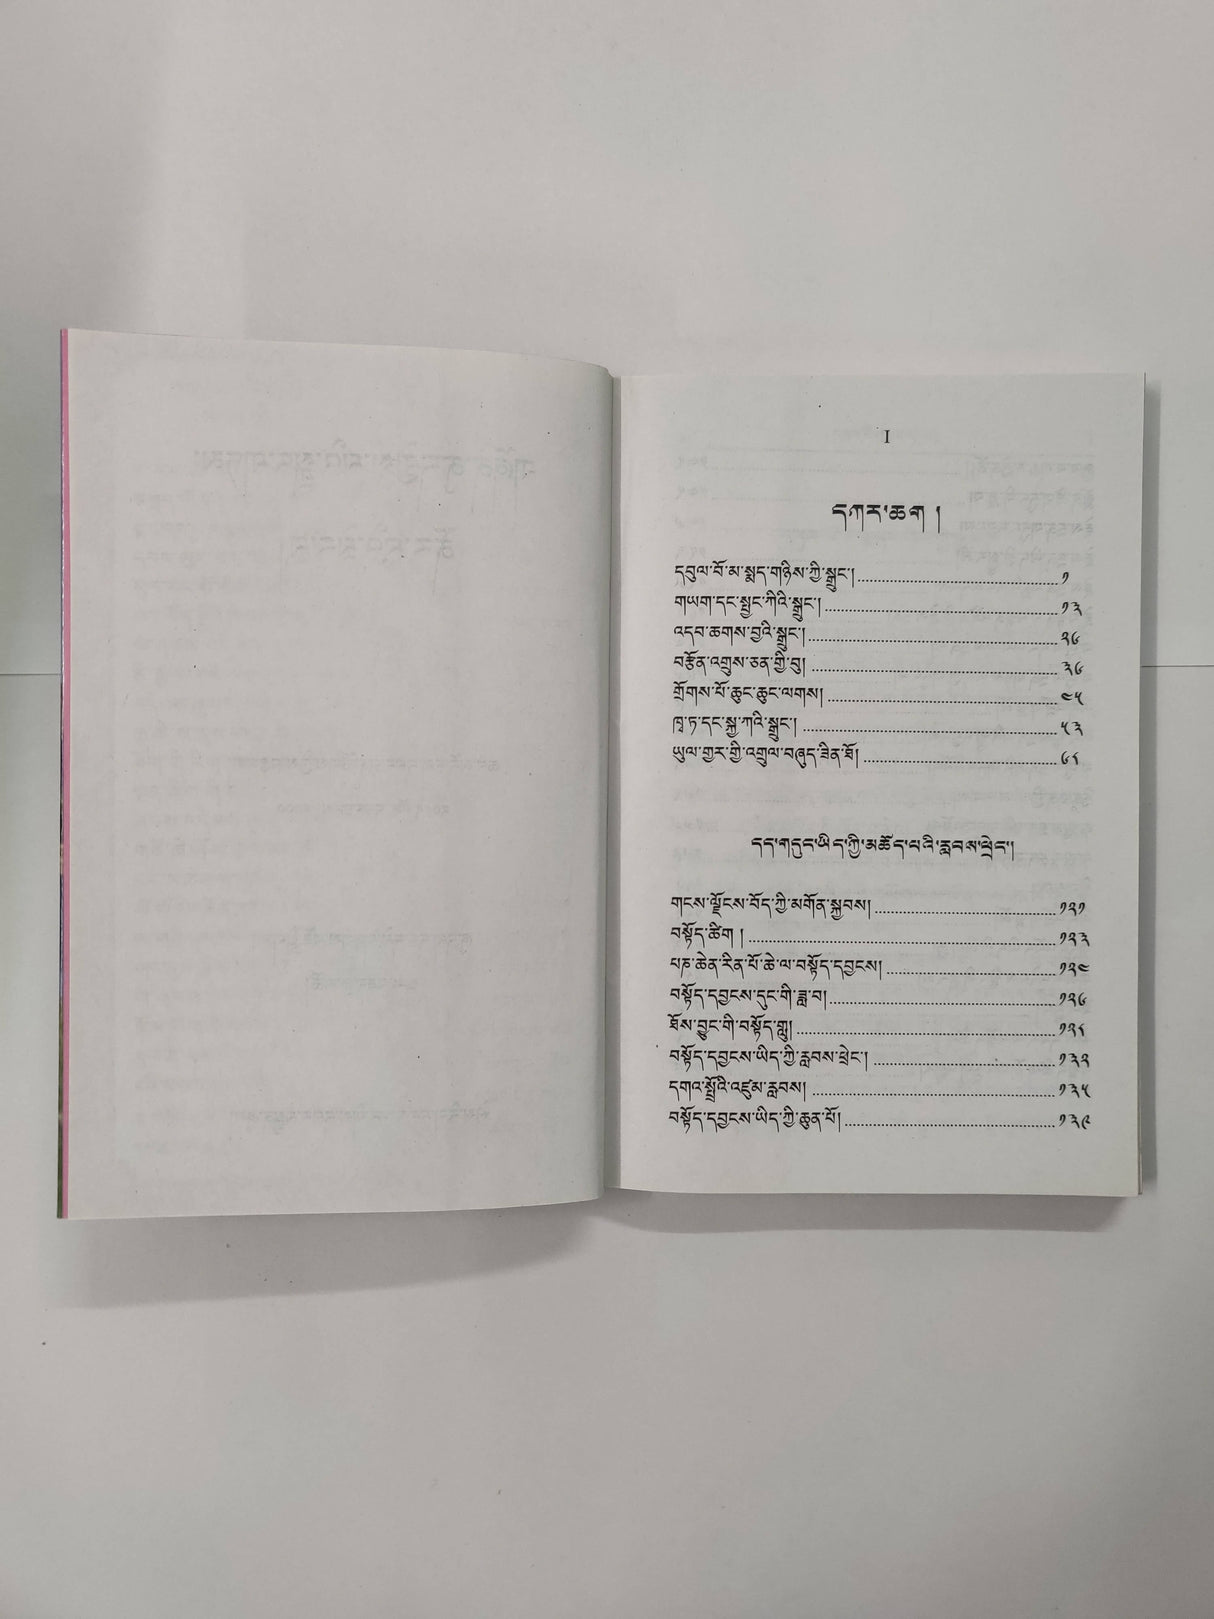 I
དཀར་ཆག །
དབུལ་བོ་མ་སྨད་གཉིས་ཀྱི་སྒྲུང་། ༡
གཡག་དང་སྤྱང་ཀིའི་སྒྲུང་། ༡༣
འདབ་ཆགས་བྱའི་སྒྲུང་། ༢༦
བརྩོན་འགྲུས་ཅན་གྱི་བུ། ༣༦
གྲོགས་པོ་ཆུང་ཆུང་ལགས། ༤༥
ཁྭ་ཏ་དང་སྐྱ་ཀའི་སྒྲུང་། ༥༣
ཡུལ་གྱར་གྱི་འགྲུལ་བཞུད་ཟིན་ཐོ། ༦༨
དད་གདུང་ཡིད་ཀྱི་མཆོད་པའི་རླབས་ཕྲེང་།།
གངས་ལྗོངས་བོད་ཀྱི་མགོན་སྐྱབས། ༡༢༡
བསྟོད་ཚིག ། ༡༢༣
པཎ་ཆེན་རིན་པོ་ཆེ་ལ་བསྟོད་དབྱངས། ༡༢༤
བསྟོད་དབྱངས་དུང་གི་ཟླ་བ། ༡༢༦
ཐོས་བྱུང་གི་བསྟོད་གླུ། ༡༢༨
བསྟོད་དབྱངས་ཡིད་ཀྱི་རླབས་ཕྲེང་། ༡༣༢
དགའ་སྤྲོའི་འཛུམ་རླབས། ༡༣༥
བསྟོད་དབྱངས་ཡིད་ཀྱི་ཆུན་པོ། ༡༣༩